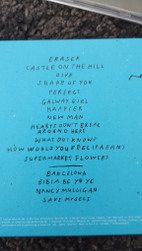 ERASER
CASTLE ON THE HILL
DIVE
SHAPE OF YOU
PERFECT
GALWAY GIRL
HAPPIER
NEW MAN
HEARTS DON'T BREAK
AROUND HERE
WHAT DO I KNOW?
HOW WOULD YOU FEEL (PAEAN)
SUPERMARKET FLOWERS
BARCELONA
BIBIA BE YE YE
NANCY MULLIGAN
SAVE MYSELF